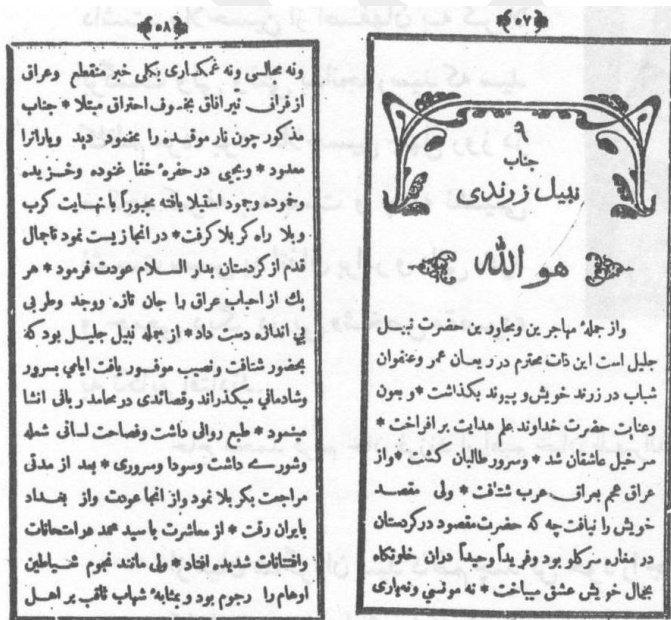 ﴿٥٧﴾
٩
جناب
نبیل زرندی
هو الله
واز جملهٔ مهاجرین ومجاورین حضرت نبیل
جلیل است این ذات محترم در ریعان عمر وعنفوان
شباب در زرند خویش و پیوند بگذاشت * و بعون
وعنایت حضرت خداوند علم هدایت بر افراخت *
سر خیل عاشقان شد * وسرور طالبان گشت * واز
عراق عجم بعراق عرب شتافت * ولی مقصد
خویش را نیافت چه که حضرت مقصود در کردستان
در مغاره سرکلو بود وفریداً وحیداً دران خلوتگاه
بجمال خویش عشق میباخت * نه مونسی ونه یاری
﴿٥٨﴾
ونه مجالسی ونه غمگساری بکلی خبر منقطع وعراق
از فراق نیر آفاق بخسوف احتراق مبتلا * جناب
مذکور چون نار موقده را مخمود دید ویارانرا
معدود * ویحیی در حفرهٔ خفا غنوده وخزیده
وخموده وجمود استیلا یافته مجبوراً با نهایت کرب
وبلا راه کربلا گرفت * در انجا زیست نمود تا جمال
قدم از کردستان بدار السلام عودت فرمود * هر
یك از احباب عراق را جان تازه ووجد وطربی
بی اندازه دست داد * از جمله نبیل جلیل بود که
بحضور شتافت ونصیب موفور یافت ایامی بسرور
وشادمانی میگذراند وقصائدی در محامد ربانی انشا
مینمود * طبع روانی داشت وفصاحت لسانی شعله
وشوری داشت وسودا وسروری * بعد از مدتی
مراجعت بکربلا نمود واز انجا عودت واز بغداد
بایران رفت * از معاشرت با سید محمد در امتحانات
وافتتانات شدیده افتاد * ولی مانند نجوم شیاطین
اوهام را رجوم بود و بمثابهٔ شهاب ثاقب بر اهل